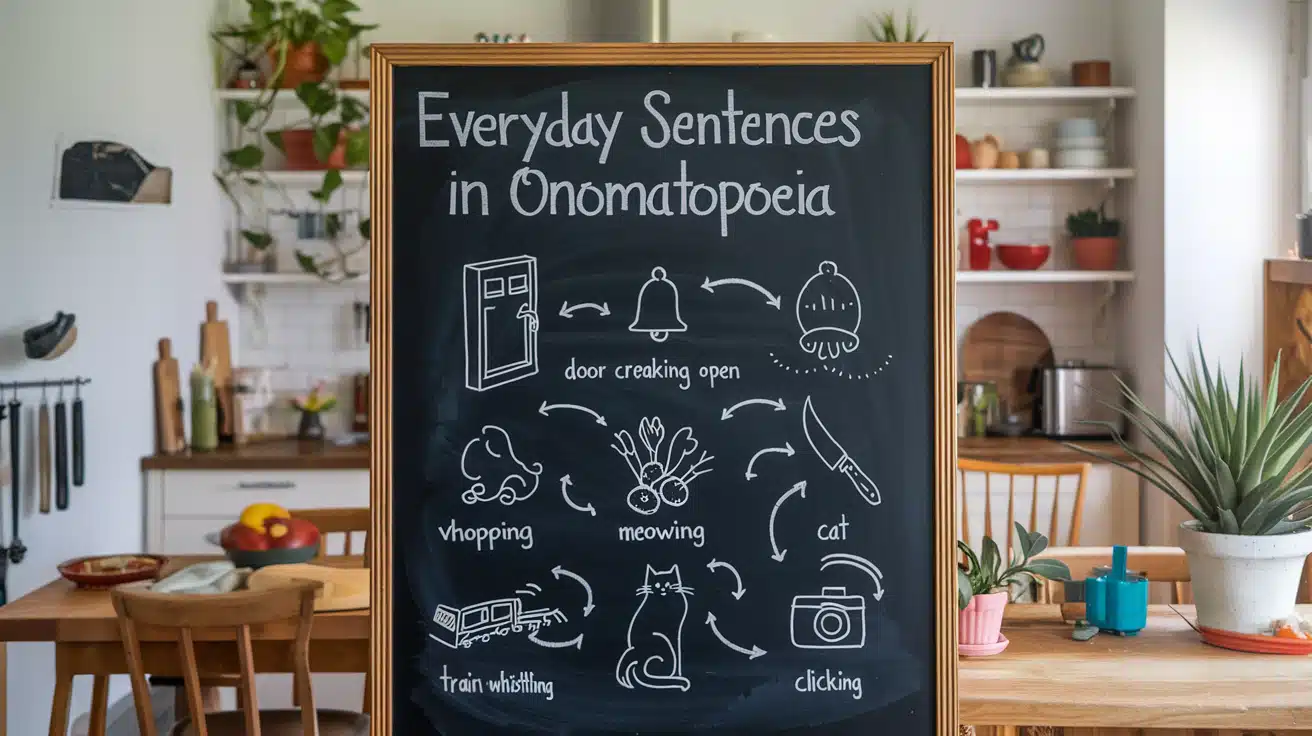 Everyday Sentences
in Onomatopoeia
door creaking open
vhopping meowing cat
train whistling clicking